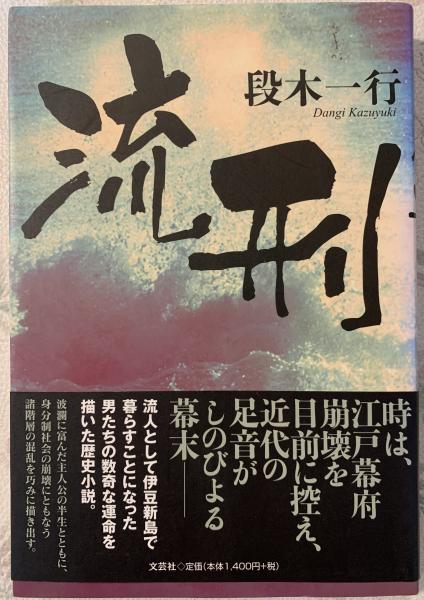 流刑
段木一行
Dangi Kazuyuki
時は、
江戸幕府
崩壊を
目前に控え、
近代の
足音が
しのびよる
幕末──
流人として伊豆新島で
暮らすことになった
男たちの数奇な運命を
描いた歴史小説。
波瀾に富んだ主人公の半生とともに、
身分制社会の崩壊にともなう
諸階層の混乱を巧みに描き出す。
文芸社◇定価(本体1,400円+税)